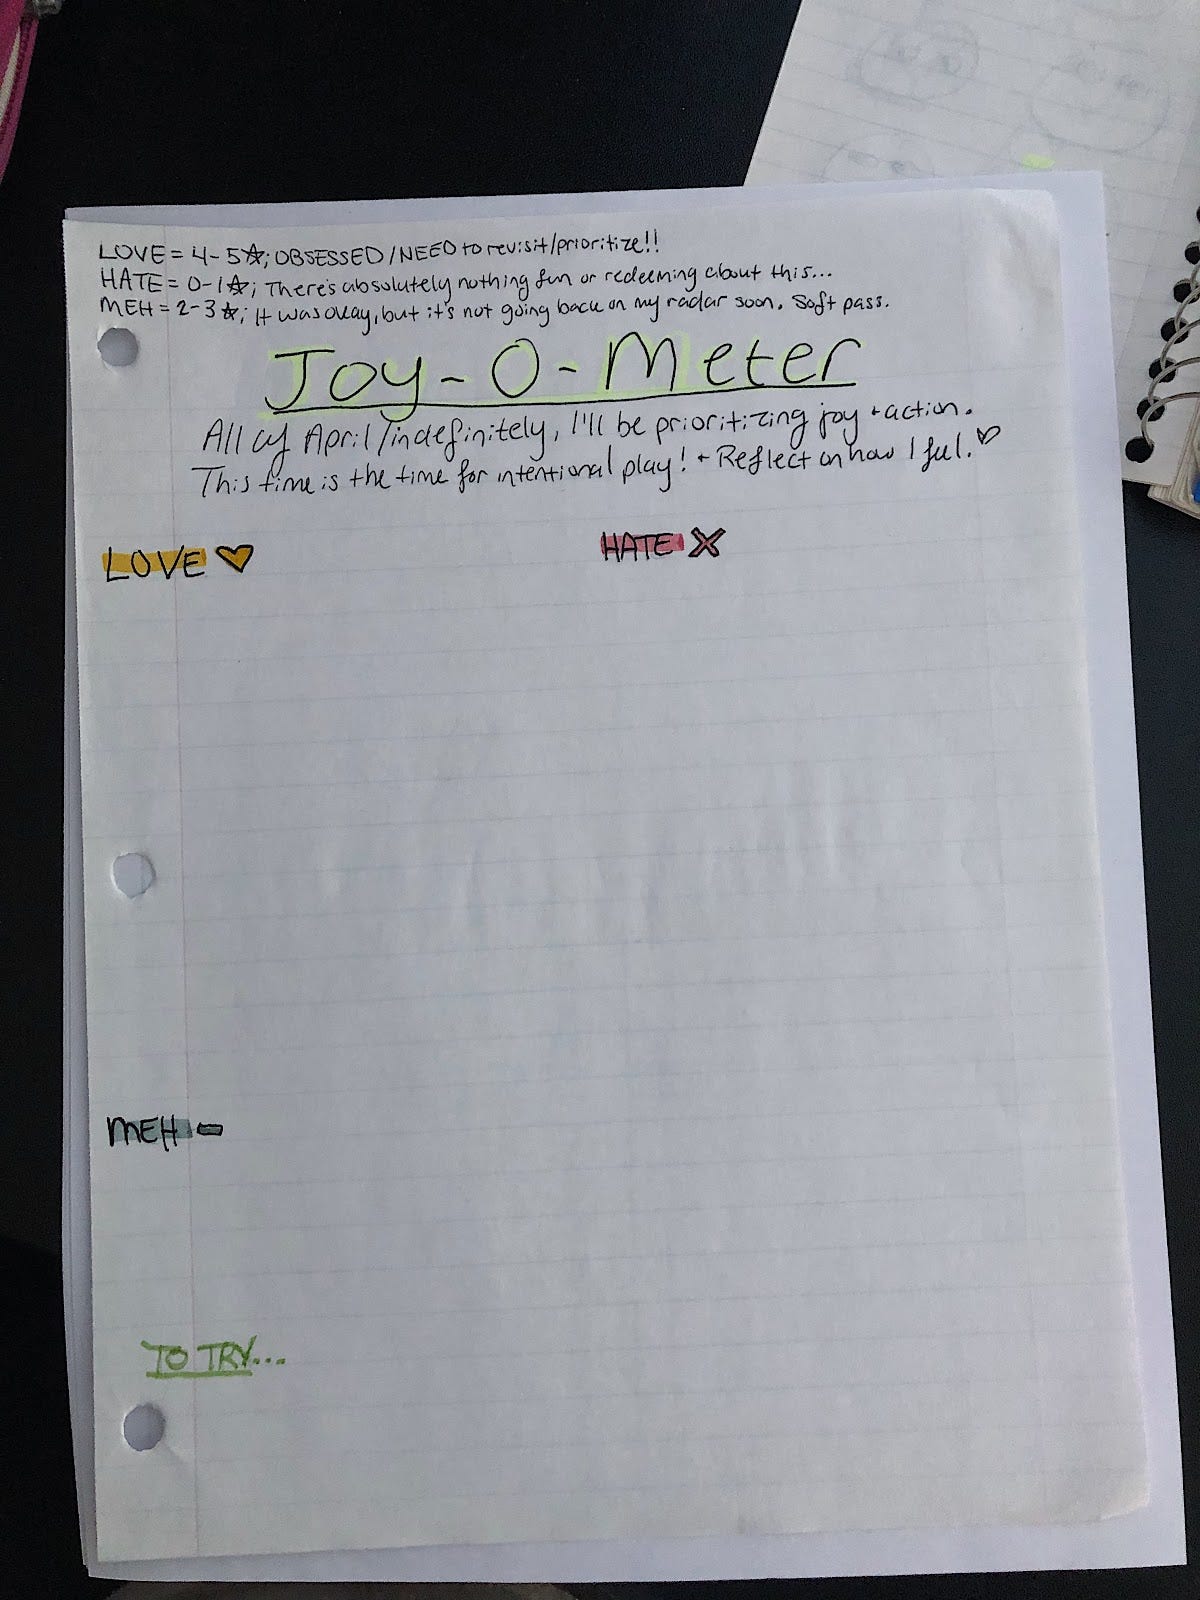 LOVE = 4-5☆; OBSESSED/NEED to revisit/prioritize!!
HATE = 0-1☆; There's absolutely nothing fun or redeeming about this...
MEH = 2-3☆; It was okay, but it's not going back on my radar soon. Soft pass.
Joy-O-Meter
All of April/indefinitely, I'll be prioritizing joy + action.
This time is the time for intentional play! + Reflect on how I feel. ♡
LOVE ♡
HATE X
MEH -
TO TRY...